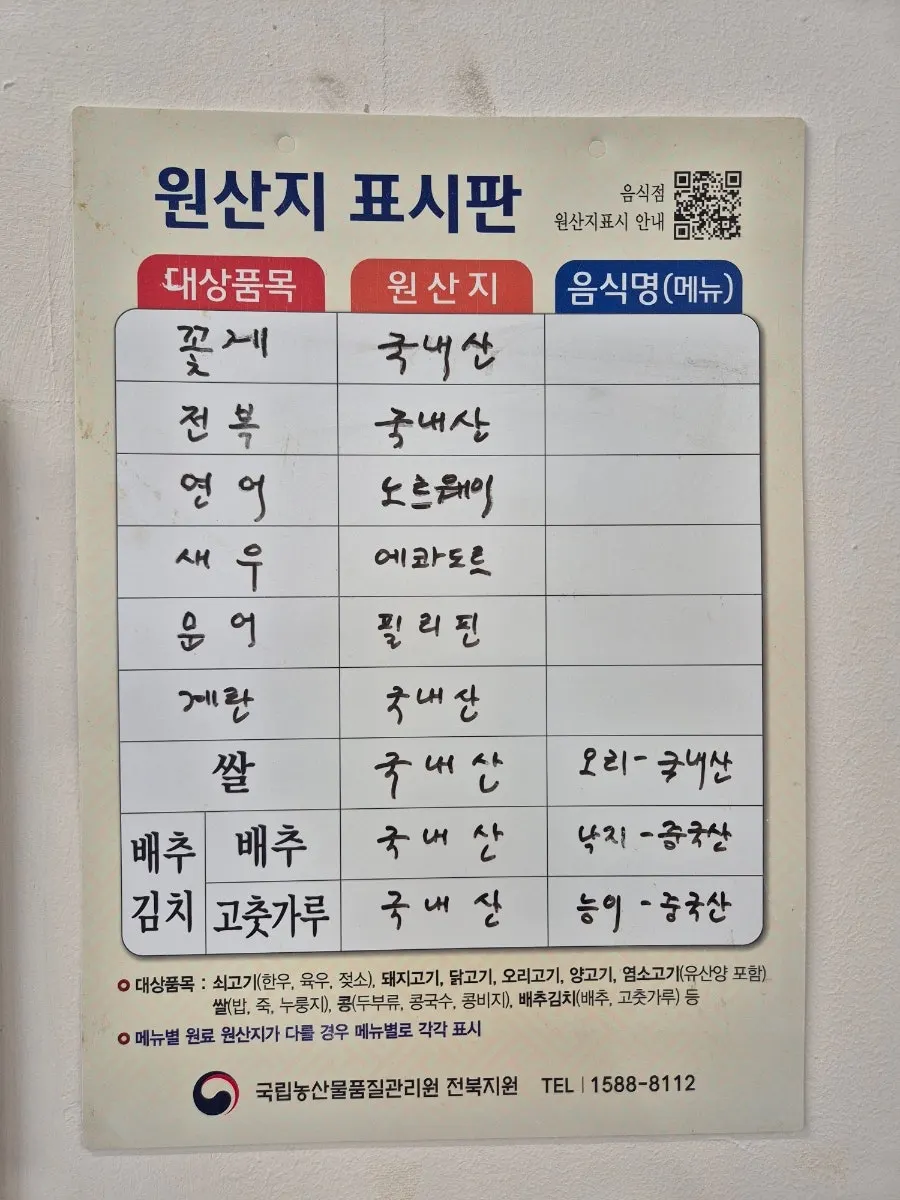 원산지 표시판
음식점
원산지표시 안내
대상품목 원산지 음식명(메뉴)
꽃게 국내산
전복 국내산
연어 노르웨이
새우 에콰도르
문어 필리핀
계란 국내산
쌀 국내산 오리-국내산
배추김치 배추 국내산 낙지-중국산
고춧가루 국내산 능이-중국산
대상품목 : 쇠고기(한우, 육우, 젖소), 돼지고기, 닭고기, 오리고기, 양고기, 염소고기(유산양 포함)
쌀(밥, 죽, 누룽지), 콩(두부류, 콩국수, 콩비지), 배추김치(배추, 고춧가루) 등
메뉴별 원료 원산지가 다를 경우 메뉴별로 각각 표시
국립농산물품질관리원 전북지원 TEL | 1588-8112